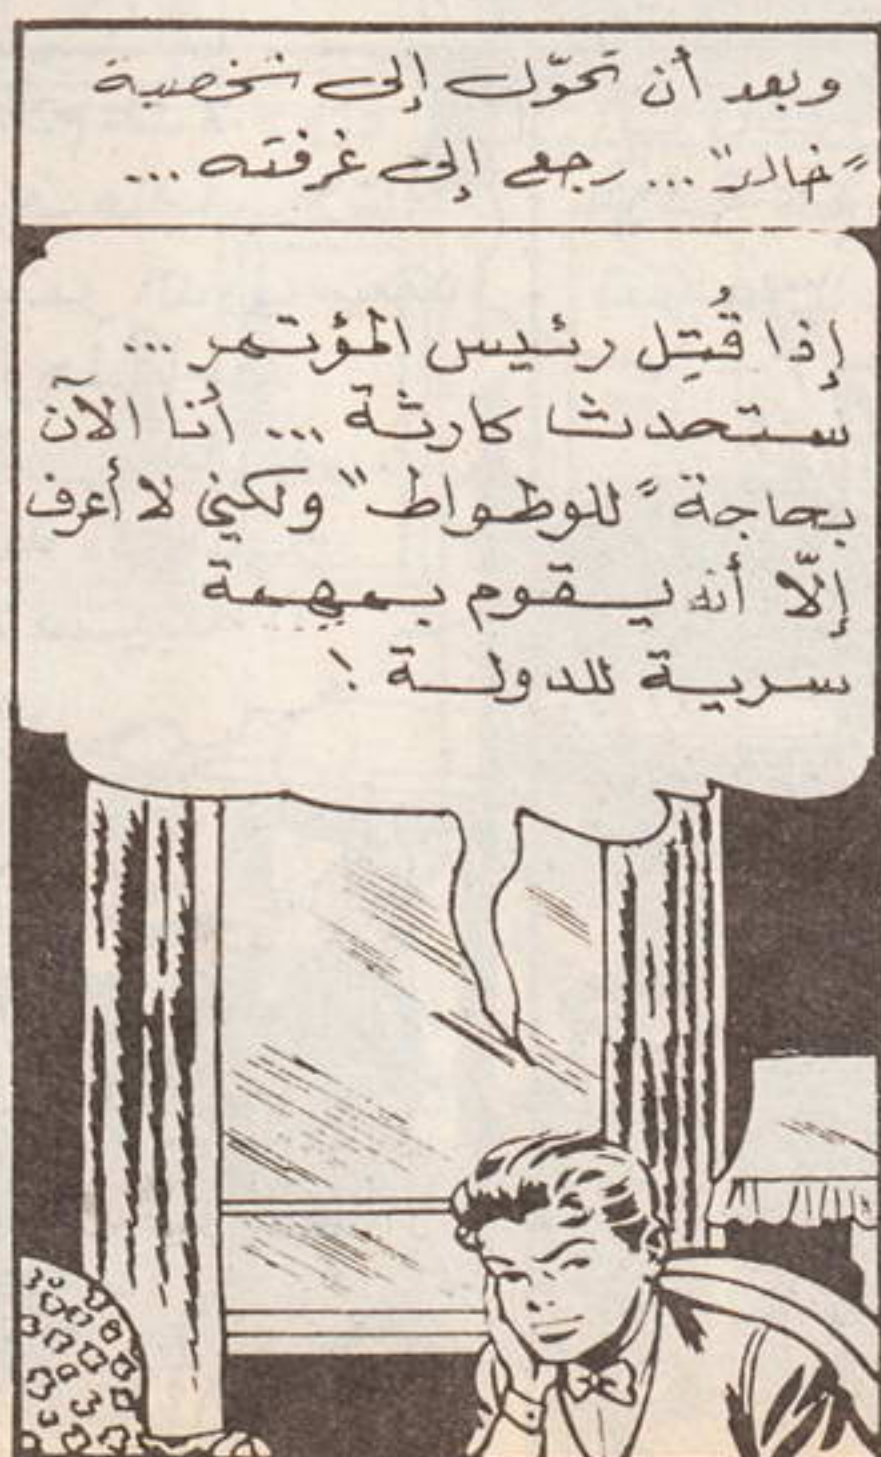 وبعد أن تحوّل إلى شخصية
"خالد"... رجع إلى غرفته...
إذا قُتِل رئيس المؤتمر...
ستحدث كارثة... أنا الآن
بحاجة "للوطواط" ولكني لا أعرف
إلّا أنه يقوم بمهمة
سرية للدولة!